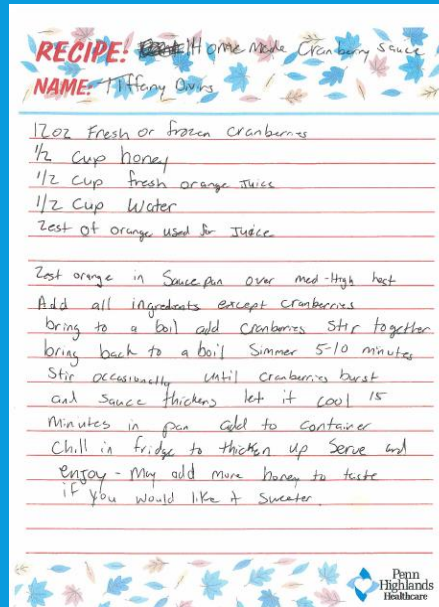 RECIPE: Home Made Cranberry Sauce
NAME: Tiffany
12oz Fresh or frozen Cranberries
1/2 Cup honey
1/2 Cup fresh orange Juice
1/2 Cup Water
Zest of orange used for Juice
Zest orange in Sauce pan over med-High heat
Add all ingredients except cranberries
bring to a boil add cranberries Stir together
bring back to a boil Simmer 5-10 minutes
Stir occasionally until cranberries burst
and Sauce thickens let it cool 15
Minutes in pan add to container
Chill in fridge to thicken up Serve and
enjoy - May add more honey to taste
if you would like it Sweeter
Penn
Highlands
Healthcare